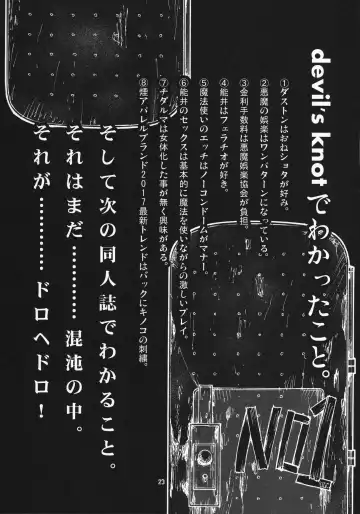 devil's knotでわかったこと。
①ダストーンはおねショタが好み。
②悪魔の娯楽はワンパターンになっている。
③金利手数料は悪魔娯楽協会が負担。
④能井はフェラチオが好き。
⑤魔法使いのエッチはノーコンドームがマナー。
⑥能井のセックスは基本的に魔法を使いながらの激しいプレイ。
⑦チダルマは女体化した事が無く興味がある。
⑧煙アパレルブランド2017最新トレンドはバックにキノコの刺繍。
そして次の同人誌でわかること。
それはまだ…………混沌の中。
それが…………ドロヘドロ！
No1
23